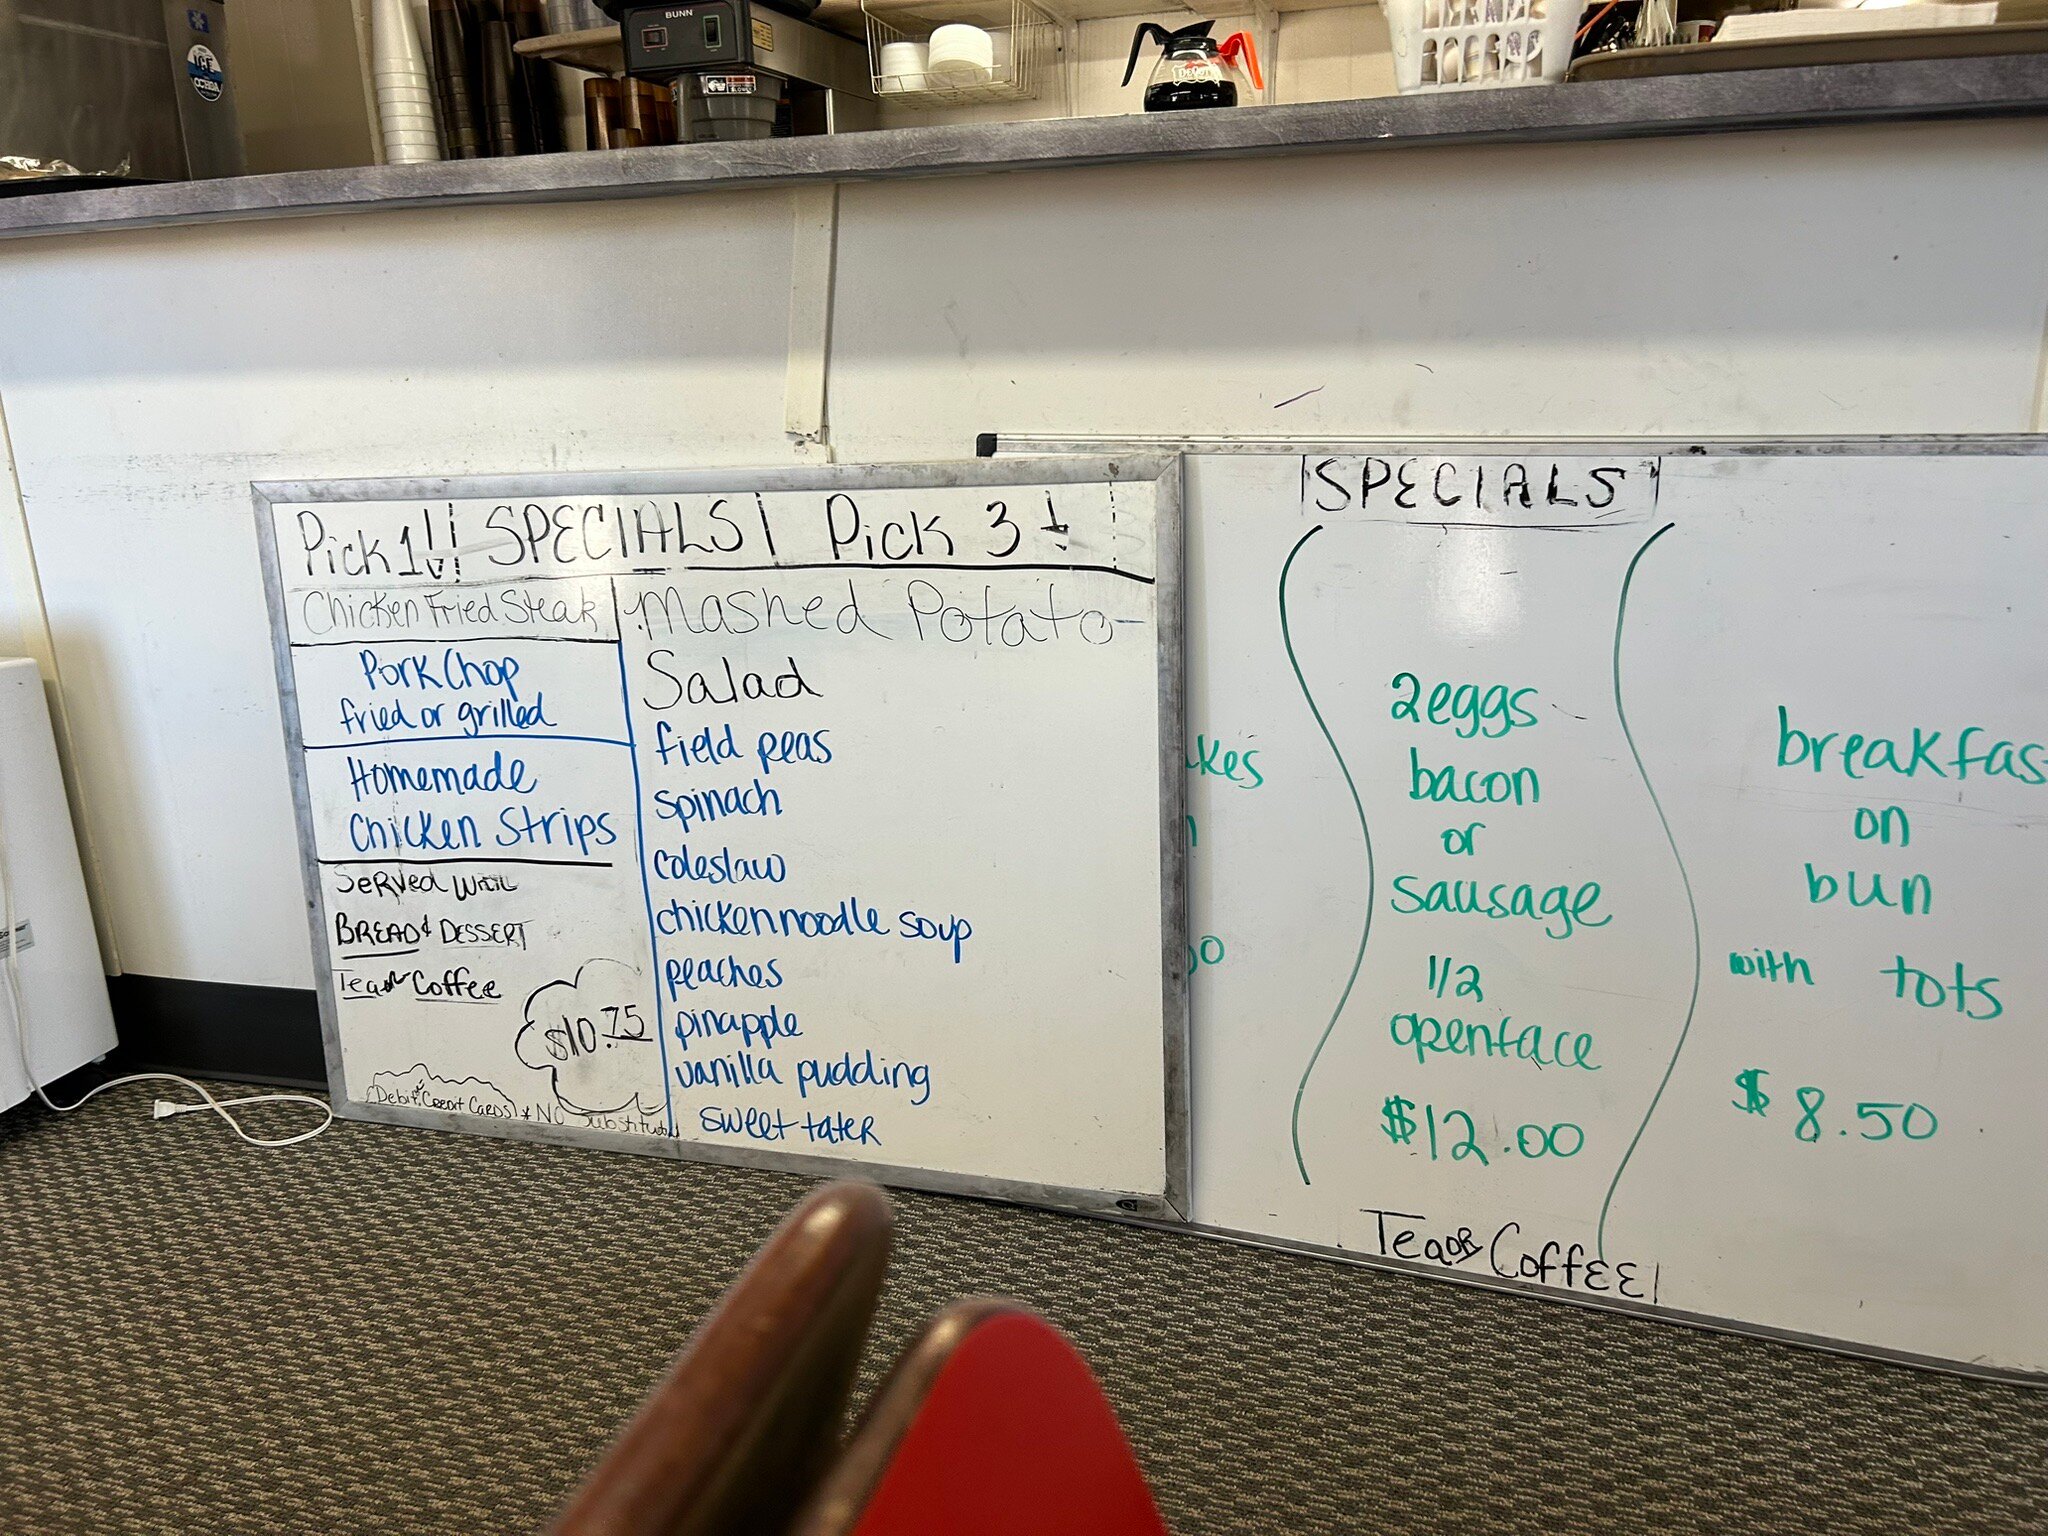 BUNN
ICE
OCHOA
Pick 1 SPECIALS Pick 3
Chicken Fried Steak
Pork Chop
fried or grilled
Homemade
Chicken Strips
Served With
BREAD & DESSERT
Tea or Coffee
$10.75
Debit & Credit Cards * NO Substitution
Mashed Potato
Salad
field peas
spinach
coleslaw
chicken noodle soup
peaches
pinapple
vanilla pudding
sweet tater
SPECIALS
2 eggs
bacon
or
sausage
1/2
openface
$12.00
breakfas
on
bun
with tots
$8.50
Tea OR Coffee